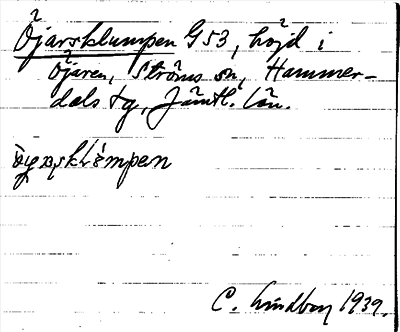 Öjarsklumpen G53, höjd i
Öjaren, Ströms sn, Hammer-
dals tg, Jämtl. län.
C. Lindberg 1939.